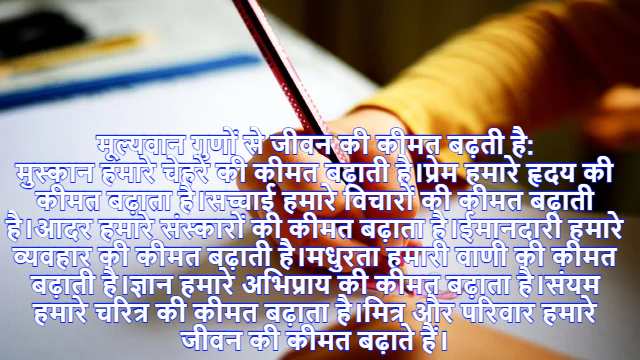 मूल्यवान गुणों से जीवन की कीमत बढ़ती है:
मुस्कान हमारे चेहरे की कीमत बढ़ाती है।प्रेम हमारे हृदय की
कीमत बढ़ाता है।सच्चाई हमारे विचारों की कीमत बढाती
है।आदर हमारे संस्कारों की कीमत बढ़ाता है।ईमानदारी हमारे
व्यवहार की कीमत बढ़ाती है।मधुरता हमारी वाणी की कीमत
बढ़ाती है।ज्ञान हमारे अभिप्राय की कीमत बढ़ाता है।संयम
हमारे चरित्र की कीमत बढ़ाता है।मित्र और परिवार हमारे
जीवन की कीमत बढ़ाते हैं।